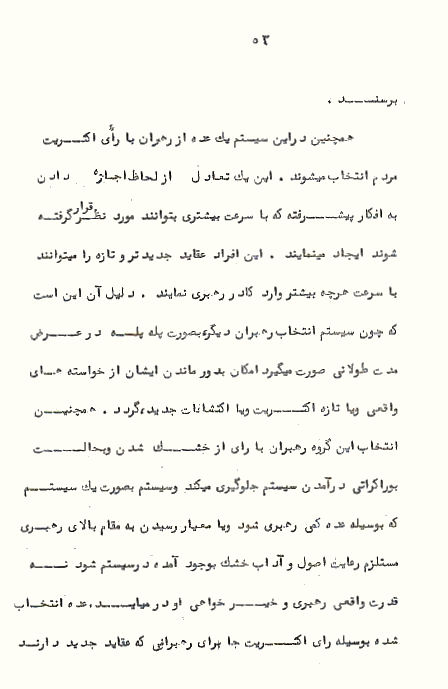 ۵۳
برسنـــد .
همچنین دراین سیستم یک عده از رهبران با رأی اکثــریت
مردم انتخاب میشوند . این یک تعادل از لحاظ اجازه دادن
به افکار پیشـــرفته که با سرعت بیشتری بتوانند مورد نظر قرار گرفتـه
شوند ایجاد مینمایند . این افراد عقاید جدیدتر و تازه را میتوانند
با سرعت هرچه بیشتر وارد کادر رهبری نمایند . دلیل آن این است
که چون سیستم انتخاب رهبران دیگر بصورت پله پلـــه در عـــرض
مدت طولانی صورت میگیرد امکان بدور ماندن ایشان از خواسته هـای
واقعی ویا تازه اکثـــریت ویا اکتشافات جدید میگردد . همچنیــن
انتخاب این گروه رهبران با رای از خشـــک شدن وبحالـــت
بوراکراتی درآمدن سیستم جلوگیری میکند وسیستم بصورت یک سیستــم
که بوسیله عده کمی رهبری شود ویا معیار رسیدن به مقام بالای رهبـری
مستلزم رعایت اصول و آداب خشک بوجود آمده درسیستم شود نـــه
قدرت واقعی رهبری و خیـــر خواهی او درمیایـــد . عده انتخـاب
شده بوسیله رای اکثـــریت جا برای رهبرانی که عقاید جدید دارنـد